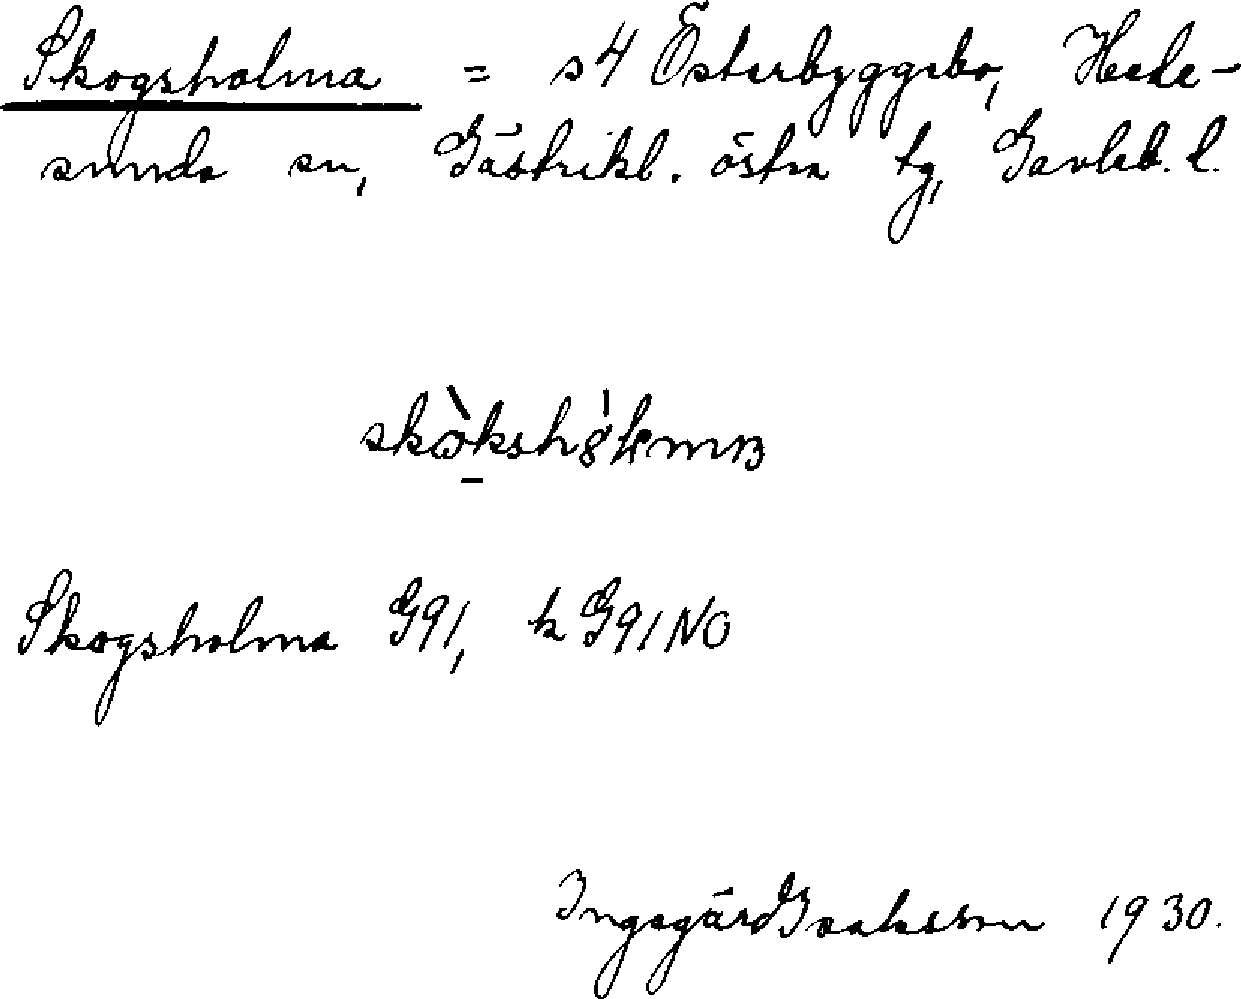 Skogsholma = s 4 Österbyggebo, Hede-
sunda sn, Gästrikl. östra tg, Gävleb. l.
Skogsholma G91, k G91NO
Ingegärd Isaksson 1930.